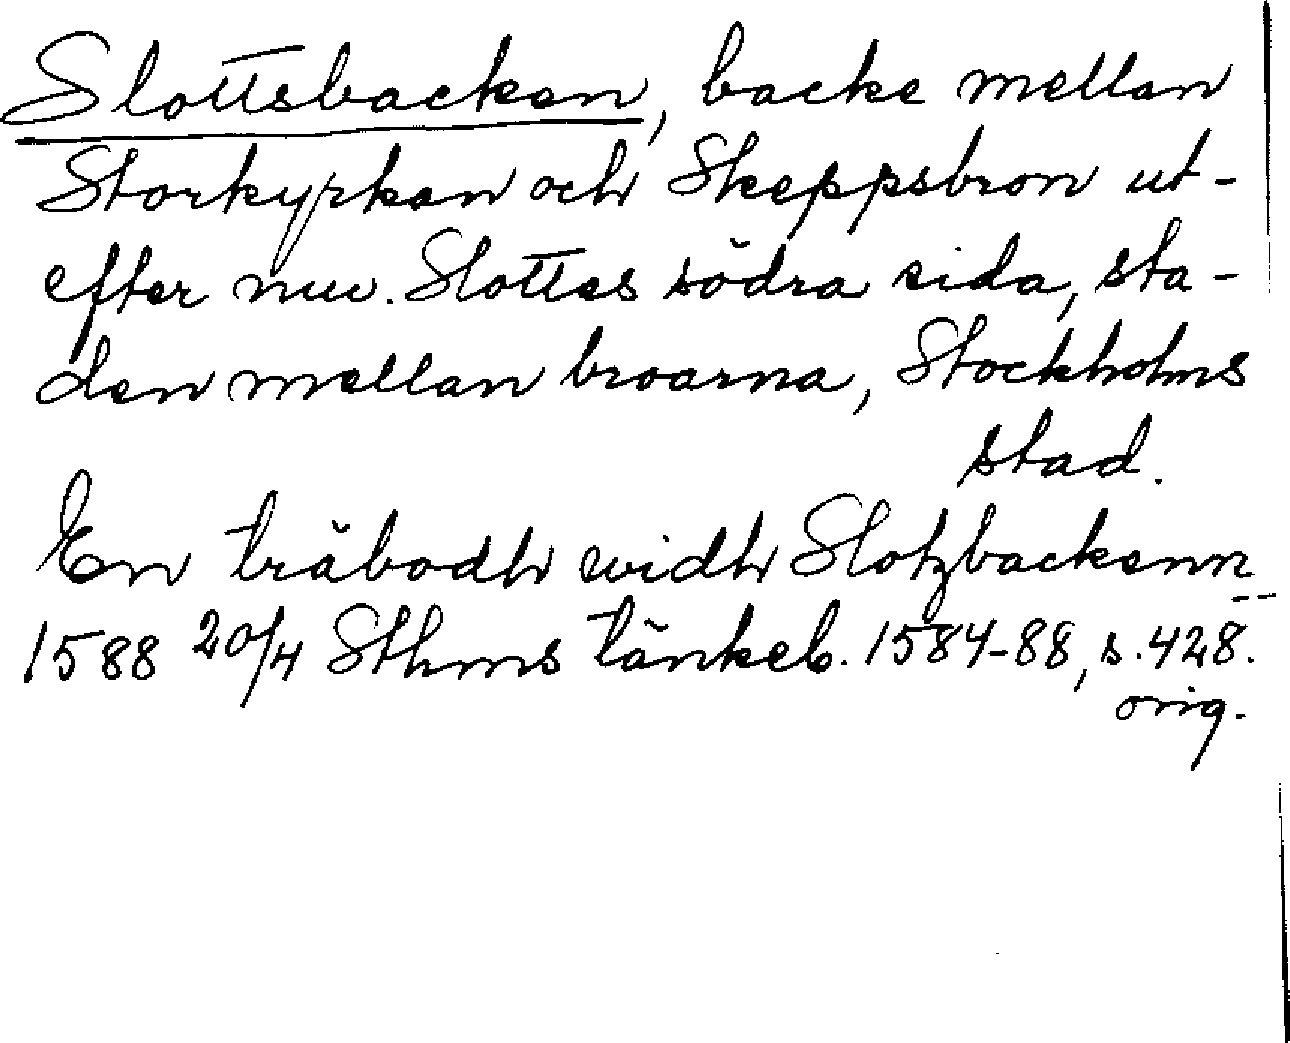 Slottsbacken, backe mellan
Storkyrkan och Skeppsbron ut-
efter nuv. Slottes södra sida, sta-
den mellan broarna, Stockholms
stad.
En träbodh widh Slotzbackenn
1588 20/4 Sthms tänkeb. 1584-88, s. 428.
orig.